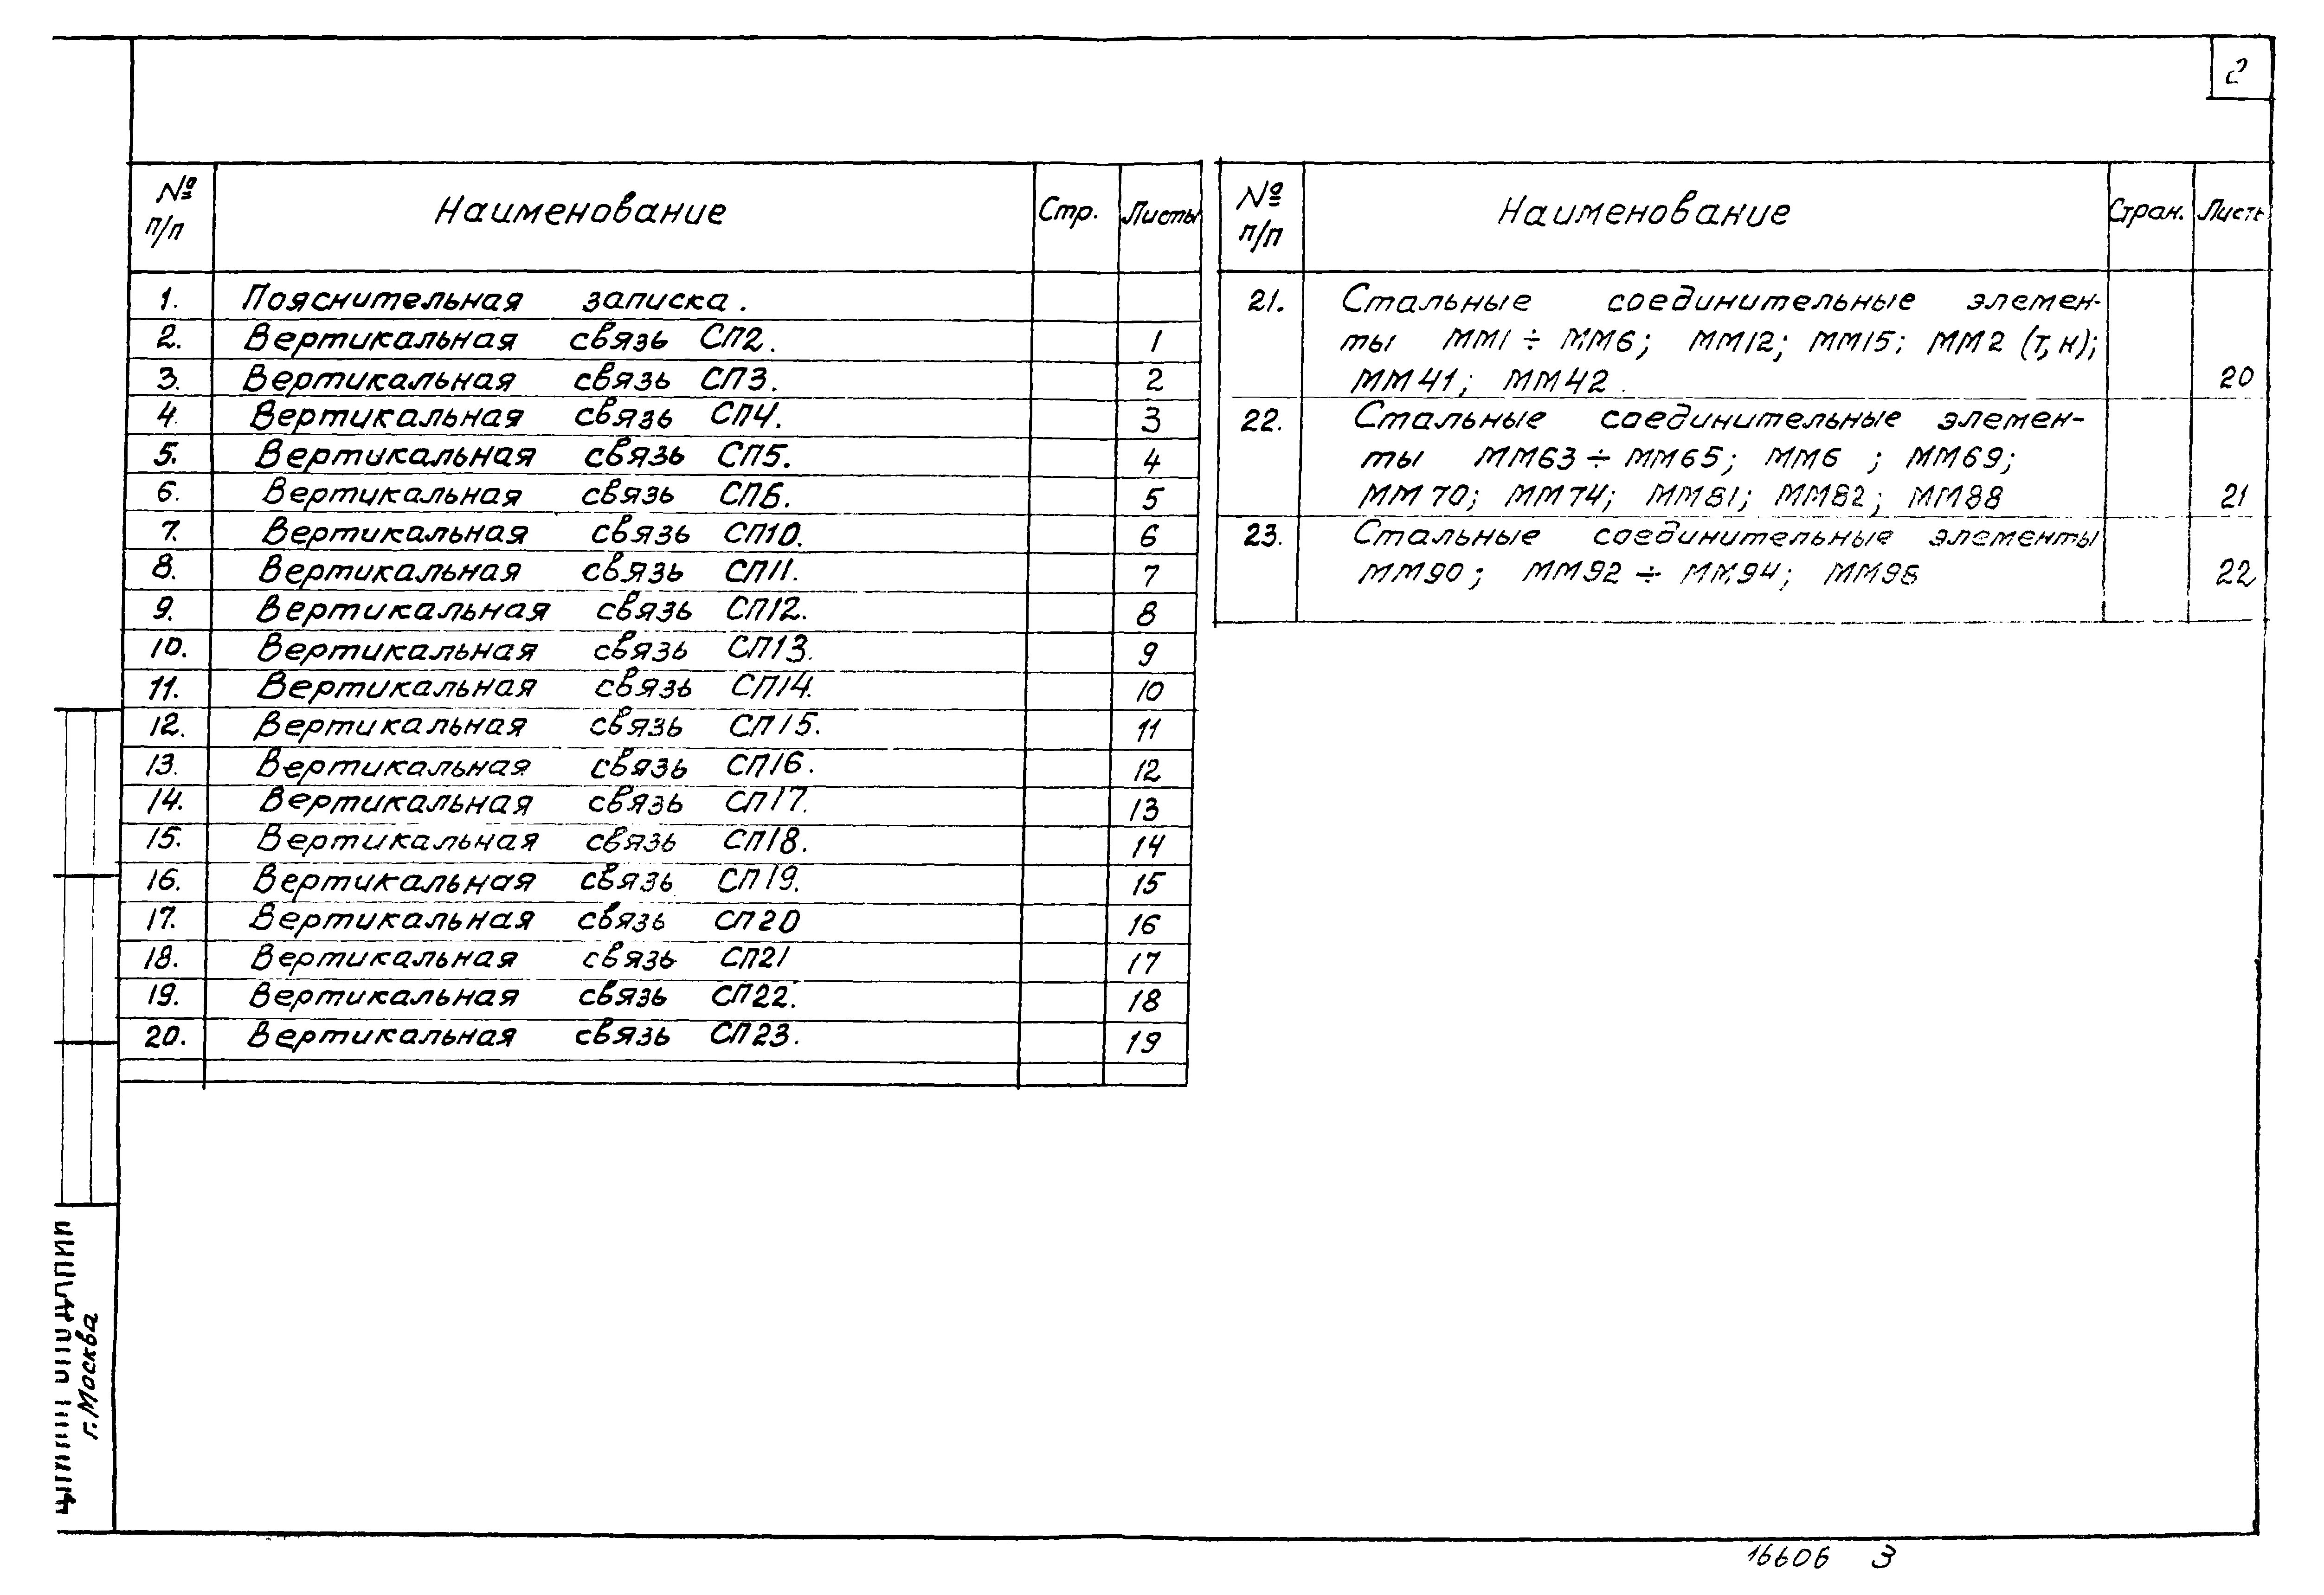 2
№ п/п Наименование Стр. Листы
1. Пояснительная записка.
2. Вертикальная связь СП2. 1
3. Вертикальная связь СП3. 2
4. Вертикальная связь СП4. 3
5. Вертикальная связь СП5. 4
6. Вертикальная связь СП6. 5
7. Вертикальная связь СП10. 6
8. Вертикальная связь СП11. 7
9. Вертикальная связь СП12. 8
10. Вертикальная связь СП13. 9
11. Вертикальная связь СП14. 10
12. Вертикальная связь СП15. 11
13. Вертикальная связь СП16. 12
14. Вертикальная связь СП17. 13
15. Вертикальная связь СП18. 14
16. Вертикальная связь СП19. 15
17. Вертикальная связь СП20 16
18. Вертикальная связь СП21 17
19. Вертикальная связь СП22. 18
20. Вертикальная связь СП23. 19
№ п/п Наименование Стран. Листы
21. Стальные соединительные элемен-
ты ММ1 ÷ ММ6; ММ12; ММ15; ММ2 (т,н);
ММ41; ММ42. 20
22. Стальные соединительные элемен-
ты ММ63 ÷ ММ65; ММ6 ; ММ69;
ММ70; ММ74; ММ81; ММ82; ММ88 21
23. Стальные соединительные элементы
ММ90; ММ92 ÷ ММ94; 22
г. Москва
16606 3